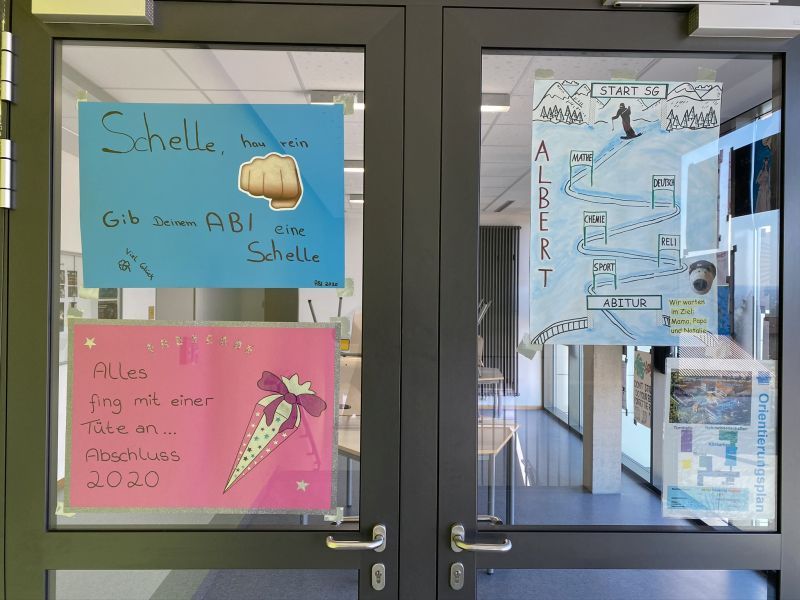 Schelle, hau rein
Gib Deinem ABI eine
Schelle
Viel Glück
ABI 2020
Alles
fing mit einer
Tüte an...
Abschluss
2020
START SG
ALBERT
MATHE
DEUTSCH
CHEMIE
RELI
SPORT
ABITUR
Wir warten
im Ziel:
Mama, Papa
und Natalie
Orientierungsplan